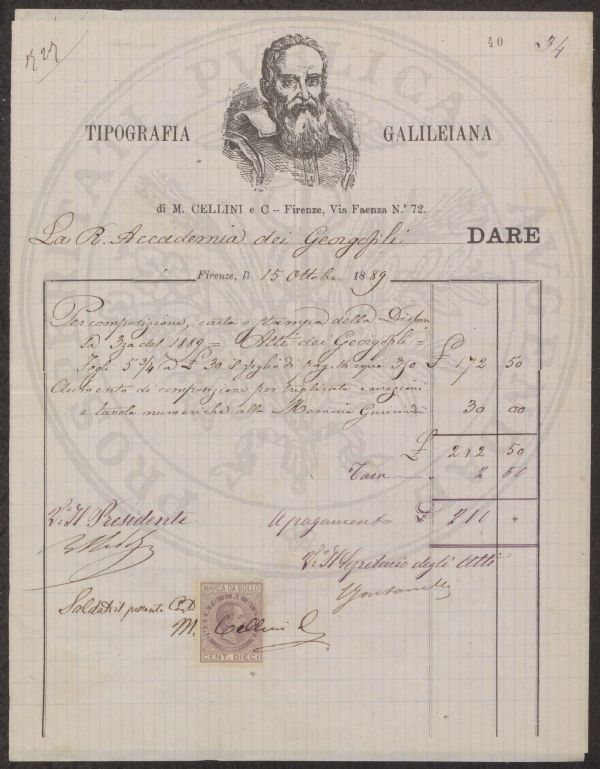 40 34
TIPOGRAFIA GALILEIANA
di M. CELLINI e C – Firenze, Via Faenza N.° 72.
La R. Accademia dei Georgofili DARE
Firenze, lì 15 Ottobe 1889
Per composizione, carta e stampa della Dispen
sa 3za del 1889 = Atti dei Georgofili =
Fogli 5 3/4 a £ 30 il foglio di pag. 16 copie 350 £ 172 50
Aumento di composizione per replicate correzioni
e tavole numeriche alla Memoria 30 00
£ 212 50
Tara 2 50
V.° Il Presidente a pagamento £ 210 "
V.° Il Segretario degli Atti
MARCA DA BOLLO
Saldato il presente
M. Cellini C
CENT. DIECI